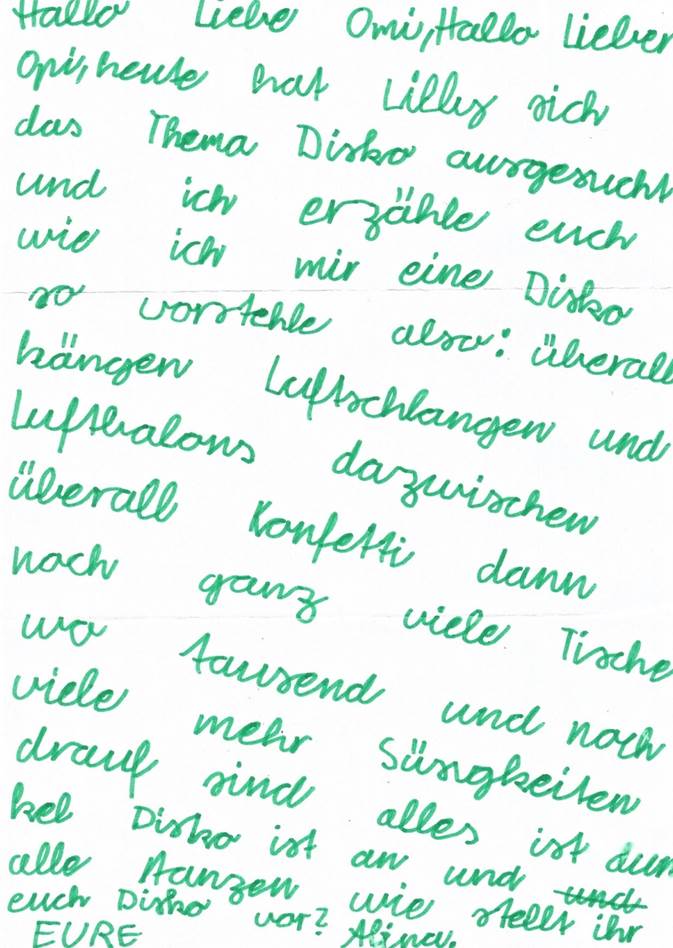 Hallo Liebe Omi, Hallo Lieber
Opi, heute hat Lilly sich
das Thema Disko ausgesucht
und ich erzähle euch
wie ich mir eine Disko
so vorstehle also: überall
hängen Luftschlangen und
Luftbalons dazwischen
überall Konfetti dann
noch ganz viele Tische
wo tausend und noch
viele mehr Süsigkeiten
drauf sind alles ist dun
kel Disko ist an und und
alle tanzen wie stellt ihr
euch Disko vor?
EURE Alina